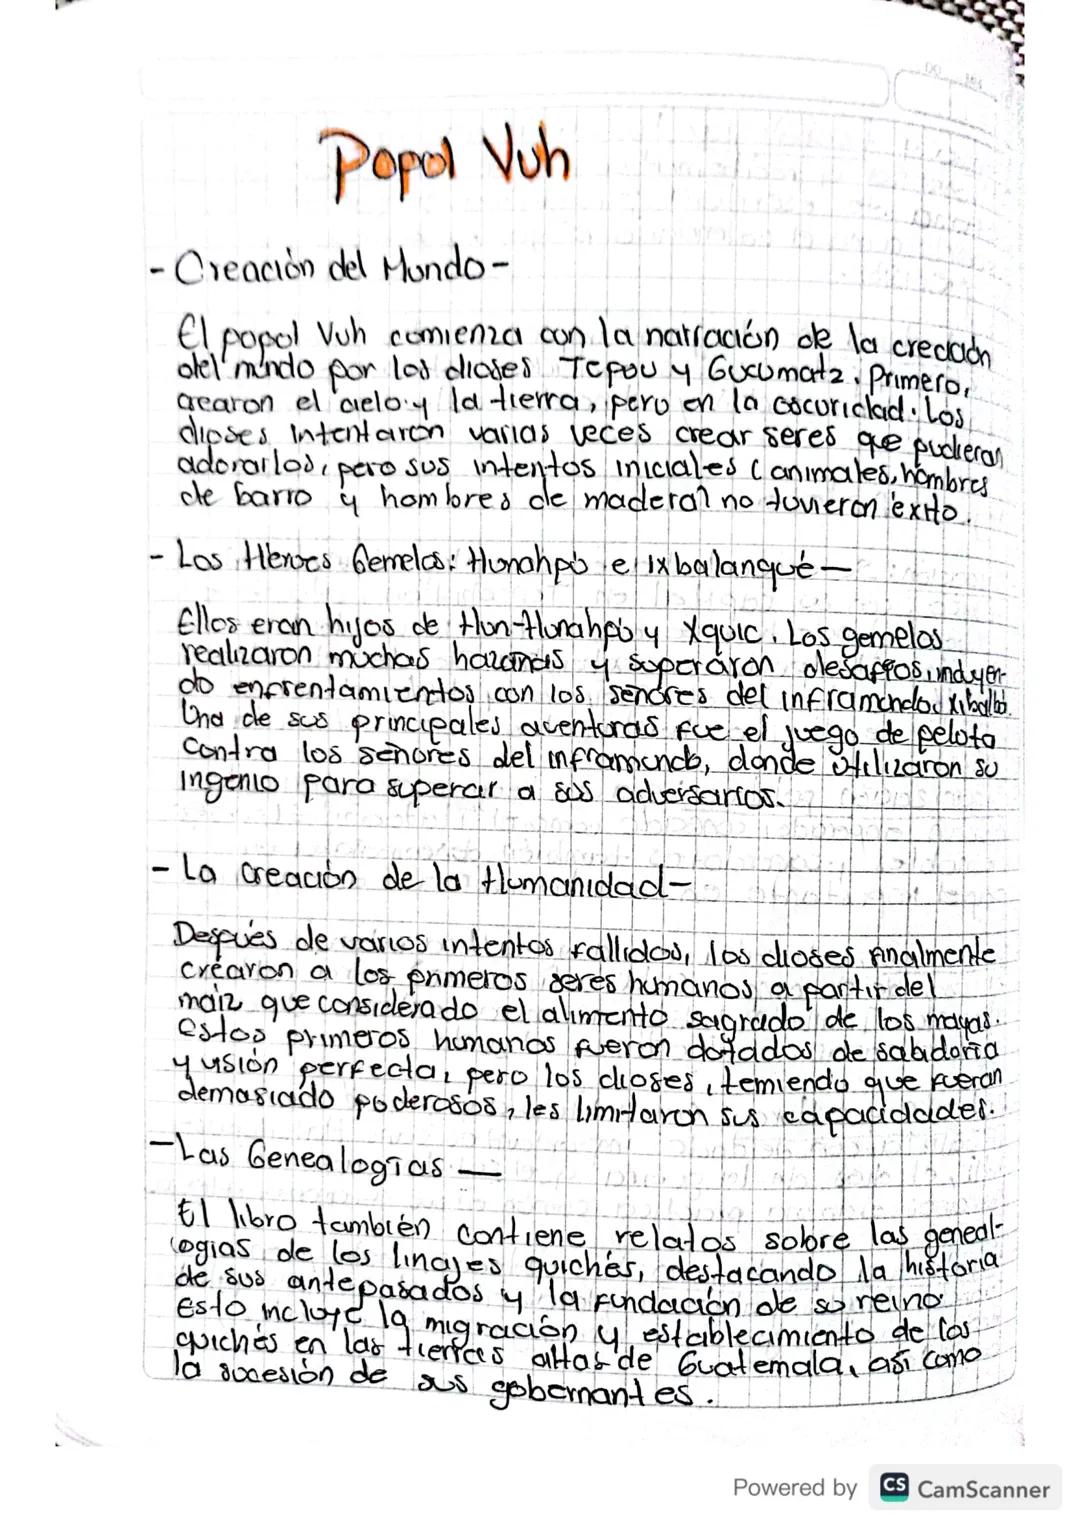 Popol Vuh
- Creación del Mundo -
El popol Vuh comienza con la narración de la creación
del mundo por los dioses Tepeu y Gucumatz. Primero,
crearon el cielo y la tierra, pero en la oscuridad. Los
dioses intentaron varias veces crear seres que pudieran
adorarlos, pero sus intentos iniciales (animales, hombres
de barro y hombres de madera) no tuvieron éxito.
- Los Héroes Gemelos: Hunahpú e Ixbalanqué -
Ellos eran hijos de Hun-Hunahpú y Xquic. Los gemelos
realizaron muchas hazañas y superaron desafíos, incluyen-
do enfrentamientos con los señores del inframundo, Xibalbá.
Una de sus principales aventuras fue el juego de pelota
contra los señores del inframundo, donde utilizaron su
ingenio para superar a sus adversarios.
- La creación de la Humanidad -
Después de varios intentos fallidos, los dioses finalmente
crearon a los primeros seres humanos a partir del
maíz que considerado el alimento sagrado de los mayas.
Estos primeros humanos fueron dotados de sabidoría
y visión perfecta, pero los dioses, temiendo que fueran
demasiado poderosos, les limitaron sus capacidades.
- Las Genealogías -
El libro también contiene relatos sobre las geneal-
ogias de los linajes quichés, destacando la historia
de sus antepasados y la fundación de su reino.
Esto incluye la migración y establecimiento de los
quichés en las tierras altas de Guatemala, así como
la sucesión de sus gobernantes.
Powered by CS CamScanner